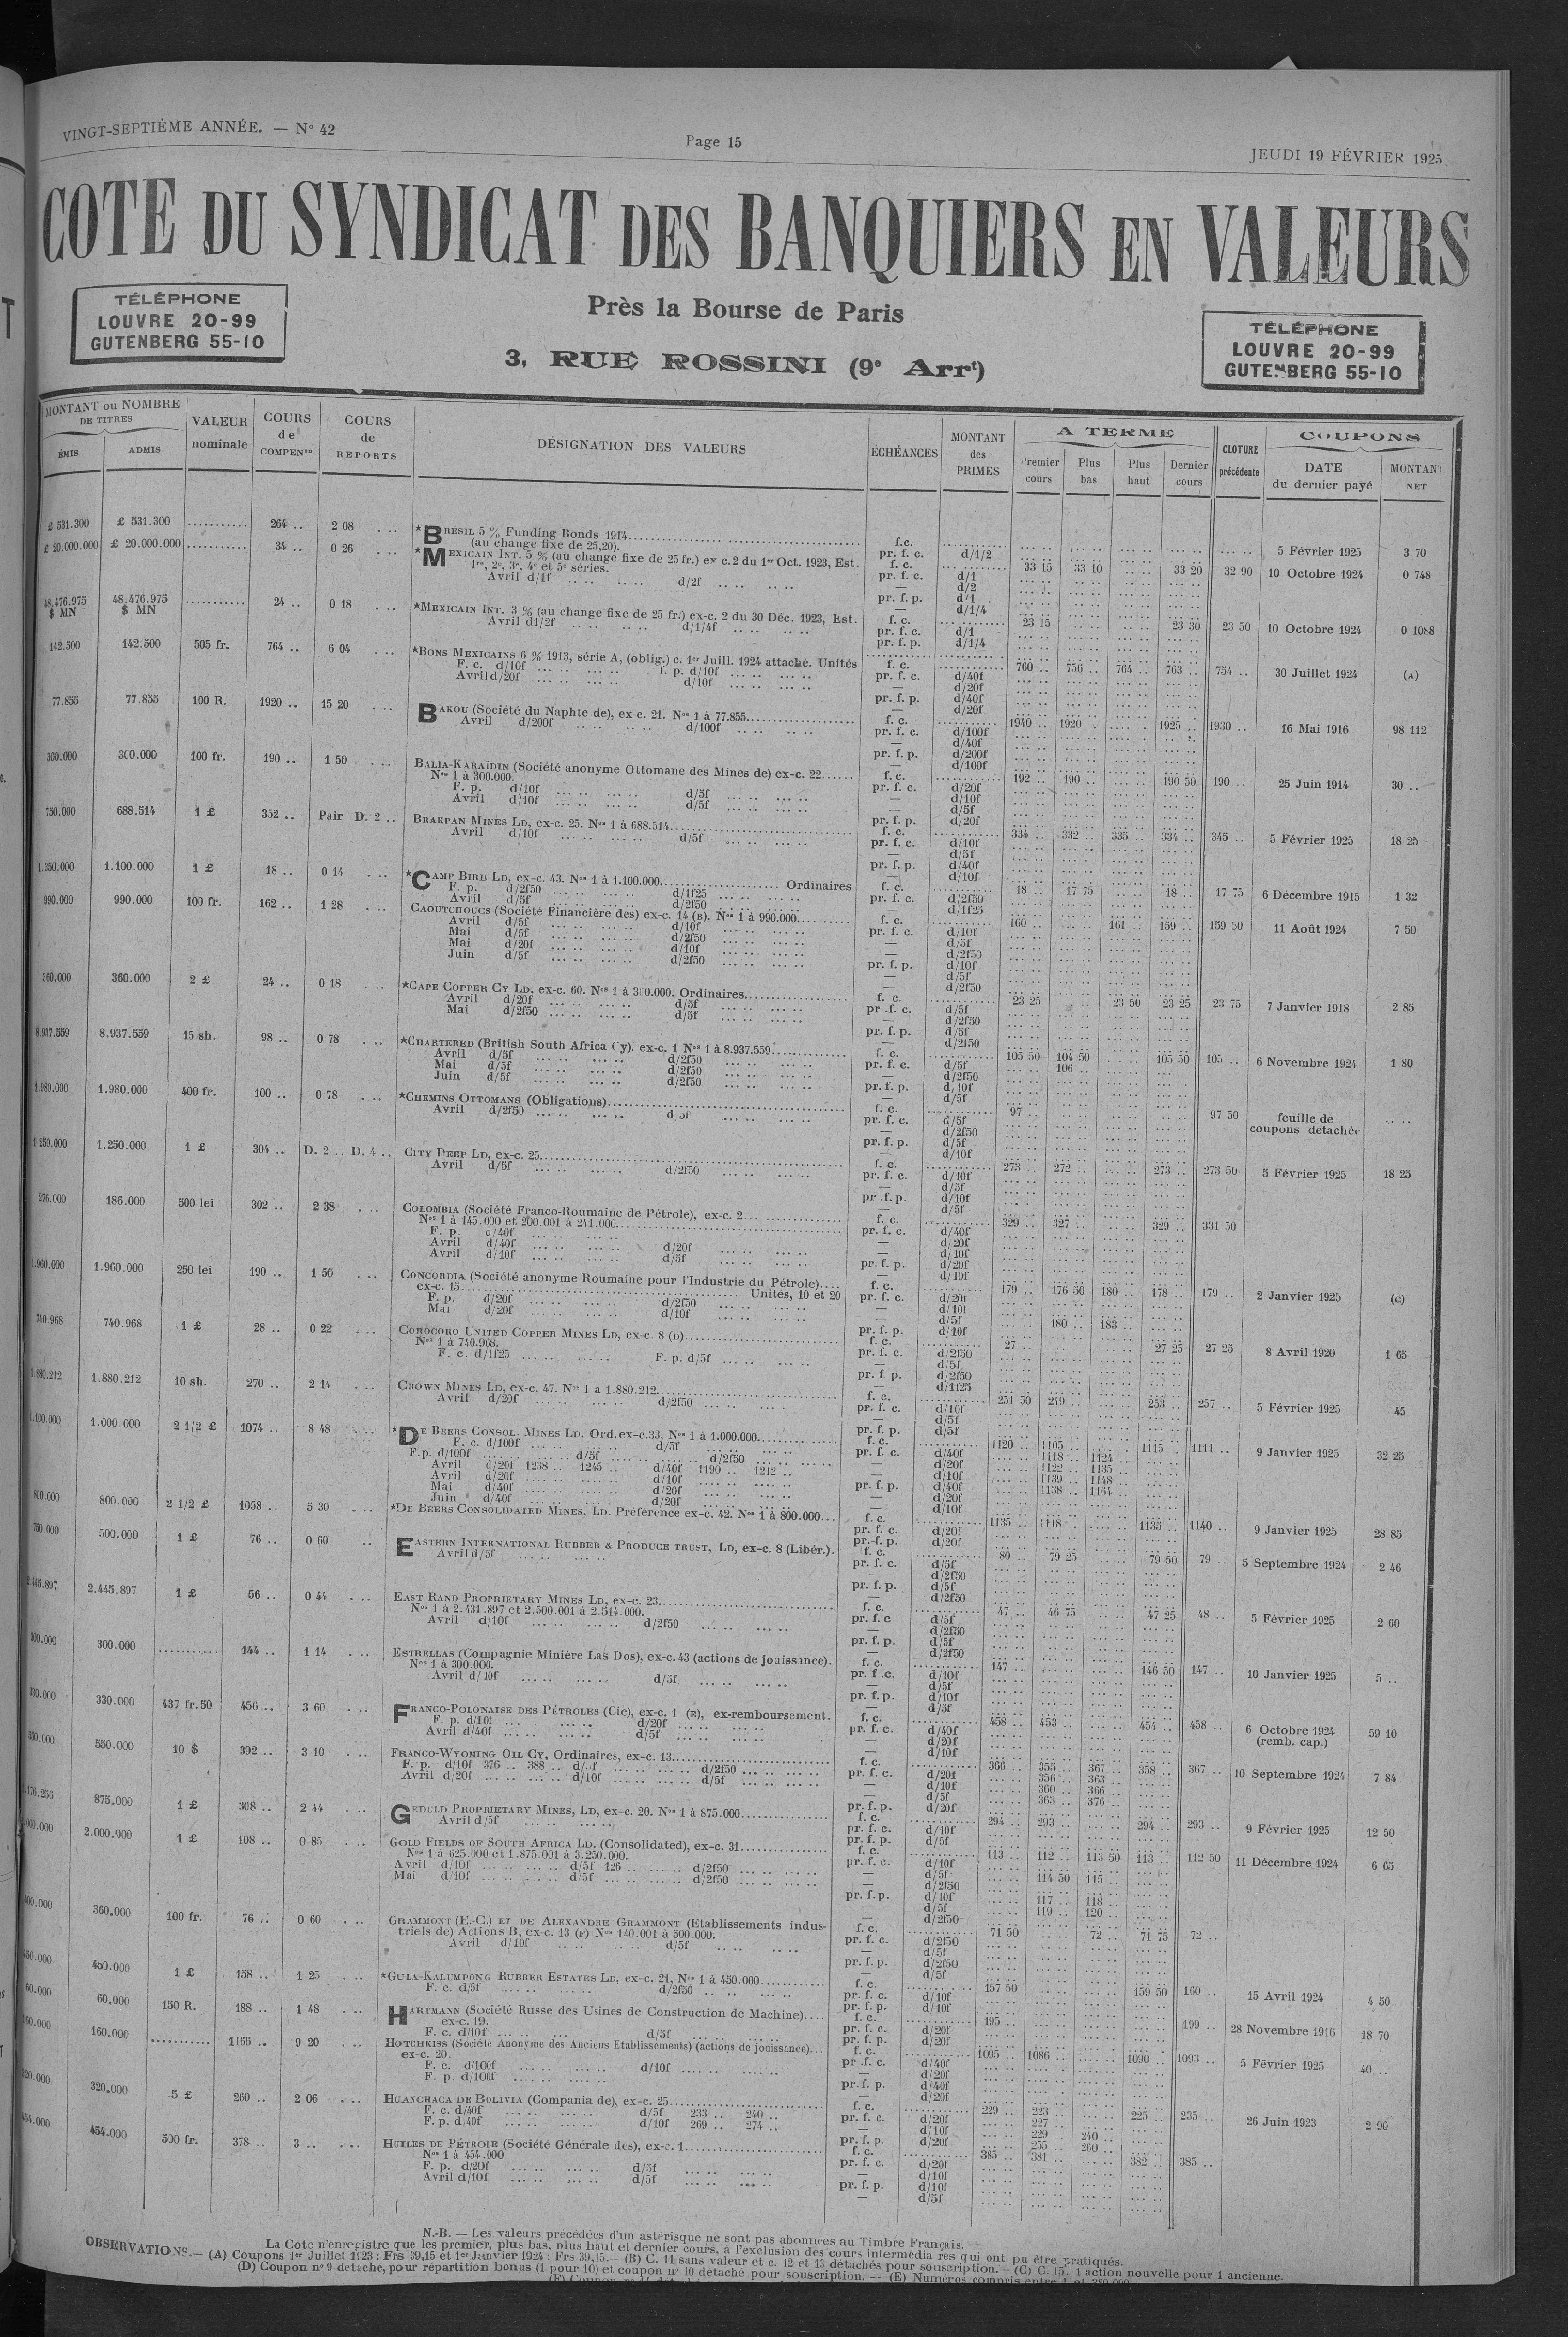 VINGT-SEPTIÈME ANNÉE. — N° 42
Page 15
JEUDI 19 FÉVRIER 1925
COTE DU SYNDICAT DES BANQUIERS EN VALEURS
TÉLÉPHONE
LOUVRE 20-99
GUTENBERG 55-10
Près la Bourse de Paris
3, RUE ROSSINI (9e Arrt)
TÉLÉPHONE
LOUVRE 20-99
GUTENBERG 55-10
MONTANT ou NOMBRE DE TITRES
ÉMIS ADMIS
VALEUR nominale
COURS de COMPENon
COURS de REPORTS
DÉSIGNATION DES VALEURS
ÉCHÉANCES
MONTANT des PRIMES
A TERME
Premier cours Plus bas Plus haut Dernier cours
CLOTURE précédente
COUPONS
DATE du dernier payé MONTANT NET
£ 531.300 £ 531.300 ........... 264 .. 2 08 . .. *BRÉSIL 5 % Funding Bonds 1914 f.c. 5 Février 1925 3 70
(au change fixe de 25,20). pr. f. c. d/1/2
£ 20.000.000 £ 20.000.000 ........... 34 .. 0 26 . .. *MEXICAIN INT. 5 % (au change fixe de 25 fr.) ex c. 2 du 1er Oct. 1923, Est. f. c. 33 15 33 10 33 20 32 90 10 Octobre 1924 0 748
1re, 2e, 3e, 4e et 5e séries. pr. f. c. d/1
Avril d/1f d/2f — d/2
pr. f. p. d/1
— d/1/4
48.476.975 $ MN 48.476.975 $ MN ........... 24 .. 0 18 . .. *MEXICAIN INT. 3 % (au change fixe de 25 fr.) ex-c. 2 du 30 Déc. 1923, Est. f. c. 23 15 23 30 23 50 10 Octobre 1924 0 1088
Avril d1/2f d/1/4f pr. f. c. d/1
pr. f. p. d/1/4
142.500 142.500 505 fr. 764 .. 6 04 . .. *BONS MEXICAINS 6 % 1913, série A, (oblig.) c. 1er Juill. 1924 attaché. Unités f. c. 760 .. 756 .. 764 .. 763 .. 754 .. 30 Juillet 1924 (A)
F. c. d/10f f. p. d/10f pr. f. c. d/40f
Avril d/20f d/10f — d/20f
pr. f. p. d/40f
— d/20f
77.855 77.855 100 R. 1920 .. 15 20 . .. BAKOU (Société du Naphte de), ex-c. 21. Nos 1 à 77.855 f. c. 1940 .. 1920 . 1925 .. 1930 .. 16 Mai 1916 98 112
Avril d/200f d/100f pr. f. c. d/100f
— d/40f
pr. f. p. d/200f
— d/100f
300.000 300.000 100 fr. 190 .. 1 50 . .. BALIA-KARAÏDIN (Société anonyme Ottomane des Mines de) ex-c. 22 f. c. 192 .. 190 .. 190 50 190 .. 25 Juin 1914 30 ..
Nos 1 à 300.000. pr. f. c. d/20f
F. p. d/10f d/5f — d/10f
Avril d/10f d/5f — d/5f
pr. f. p. d/20f
750.000 688.514 1 £ 352 .. Pair D. 2 .. BRAKPAN MINES LD, ex-c. 25. Nos 1 à 688.514 f. c. 334 .. 332 .. 335 .. 334 .. 345 .. 5 Février 1925 18 25
Avril d/10f d/5f pr. f. c. d/10f
— d/5f
pr. f. p. d/40f
— d/10f
1.350.000 1.100.000 1 £ 18 .. 0 14 . .. *CAMP BIRD LD, ex-c. 43. Nos 1 à 1.100.000 Ordinaires f. c. 18 .. 17 75 18 .. 17 75 6 Décembre 1915 1 32
F. p. d/2f50 d/1f25 pr. f. c. d/2f50
Avril d/5f d/2f50 — d/1f25
990.000 990.000 100 fr. 162 .. 1 28 . .. CAOUTCHOUCS (Société Financière des) ex-c. 14 (B). Nos 1 à 990.000 f. c. 160 .. 161 .. 159 .. 159 50 11 Août 1924 7 50
Avril d/5f d/10f pr. f. c. d/10f
Mai d/5f d/2f50 — d/5f
Mai d/20f d/10f — d/2f50
Juin d/5f d/2f50 pr. f. p. d/10f
— d/5f
— d/2f50
360.000 360.000 2 £ 24 .. 0 18 . .. *CAPE COPPER CY LD, ex-c. 60. Nos 1 à 300.000. Ordinaires f. c. 23 25 23 50 23 25 23 75 7 Janvier 1918 2 85
Avril d/20f d/5f pr. f. c. d/5f
Mai d/2f50 d/5f — d/2f50
pr. f. p. d/5f
— d/2f50
8.937.559 8.937.559 15 sh. 98 .. 0 78 . .. *CHARTERED (British South Africa Cy). ex-c. 1 Nos 1 à 8.937.559 f. c. 105 50 104 50 105 50 105 .. 6 Novembre 1924 1 80
Avril d/5f d/2f50 pr. f. c. d/5f 106 ..
Mai d/5f d/2f50 — d/2f50
Juin d/5f d/2f50 pr. f. p. d/10f
— d/5f
1.980.000 1.980.000 400 fr. 100 .. 0 78 . .. *CHEMINS OTTOMANS (Obligations) f. c. 97 .. 97 50 feuille de coupons détachée
Avril d/2f50 d/5f pr. f. c. d/5f
— d/2f50
pr. f. p. d/5f
— d/10f
1.250.000 1.250.000 1 £ 304 .. D. 2 .. D. 4 .. CITY DEEP LD, ex-c. 25 f. c. 273 .. 272 .. 273 .. 273 50 5 Février 1925 18 25
Avril d/5f d/2f50 pr. f. c. d/10f
— d/5f
pr. f. p. d/10f
— d/5f
276.000 186.000 500 lei 302 .. 2 38 . .. COLOMBIA (Société Franco-Roumaine de Pétrole), ex-c. 2 f. c. 329 .. 327 .. 329 .. 331 50
Nos 1 à 145.000 et 200.001 à 241.000 pr. f. c. d/40f
F. p. d/40f — d/20f
Avril d/40f d/20f — d/10f
Avril d/10f d/5f pr. f. p. d/20f
— d/10f
1.960.000 1.960.000 250 lei 190 .. 1 50 . .. CONCORDIA (Société anonyme Roumaine pour l'Industrie du Pétrole) f. c. 179 .. 176 50 180 .. 178 .. 179 .. 2 Janvier 1925 (C)
ex-c. 15 Unités, 10 et 20 pr. f. c. d/20f
F. p. d/20f d/2f50 — d/10f
Mai d/20f d/10f — d/5f 180 .. 183 ..
pr. f. p. d/10f
740.968 740.968 1 £ 28 .. 0 22 . .. COROCORO UNITED COPPER MINES LD, ex-c. 8 (D) f. c. 27 .. 27 25 27 25 8 Avril 1920 1 65
Nos 1 à 740.968. pr. f. c. d/2f50
F. c. d/1f25 F. p. d/5f — d/5f
pr. f. p. d/2f50
— d/1f25
1.880.212 1.880.212 10 sh. 270 .. 2 14 . .. CROWN MINES LD, ex-c. 47. Nos 1 a 1.880.212 f. c. 251 50 249 .. 253 .. 257 .. 5 Février 1925 45
Avril d/20f d/2f50 pr. f. c. d/10f
— d/5f
pr. f. p. d/5f
1.100.000 1.000.000 2 1/2 £ 1074 .. 8 48 . .. *DE BEERS CONSOL. MINES LD. Ord. ex-c. 33, Nos 1 à 1.000.000 f. c. 1120 .. 1105 .. 1115 .. 1111 .. 9 Janvier 1925 32 25
F. c. d/100f d/5f pr. f. c. d/40f 1118 .. 1124 ..
F.p. d/100f d/5f d/2f50 — d/20f 1122 .. 1135 ..
Avril d/20f 1238 .. 1245 .. d/40f 1190 .. 1212 .. — d/10f 1139 .. 1148 ..
Avril d/20f d/10f pr. f. p. d/40f 1138 .. 1164 ..
Mai d/40f d/20f — d/20f
Juin d/40f d/20f — d/10f
800.000 800.000 2 1/2 £ 1058 .. 5 30 . .. *DE BEERS CONSOLIDATED MINES, LD. Préférence ex-c. 42. Nos 1 à 800.000 f. c. 1135 .. 1118 .. 1135 .. 1140 .. 9 Janvier 1925 28 85
pr. f. c. d/20f
pr. f. p. d/20f
750.000 500.000 1 £ 76 .. 0 60 .. EASTERN INTERNATIONAL RUBBER & PRODUCE TRUST, LD, ex-c. 8 (Libér.). f. c. 80 .. 79 25 79 50 79 .. 5 Septembre 1924 2 46
Avril d/5f pr. f. c. d/5f
— d/2f50
pr. f. p. d/5f
— d/2f50
2.445.897 2.445.897 1 £ 56 .. 0 44 . .. EAST RAND PROPRIETARY MINES LD, ex-c. 23 f. c. 47 .. 46 75 47 25 48 .. 5 Février 1925 2 60
Nos 1 à 2.431.897 et 2.500.001 à 2.514.000. pr. f. c d/5f
Avril d/10f d/2f50 — d/2f50
pr. f. p. d/5f
— d/2f50
300.000 300.000 .......... 144 .. 1 14 . .. ESTRELLAS (Compagnie Minière Las Dos), ex-c. 43 (actions de jouissance). f. c. 147 .. 146 50 147 .. 10 Janvier 1925 5 ..
Nos 1 à 300.000. pr. f. c. d/10f
Avril d/10f d/5f — d/5f
pr. f. p. d/10f
— d/5f
330.000 330.000 437 fr. 50 456 .. 3 60 . .. FRANCO-POLONAISE DES PÉTROLES (Cie), ex-c. 1 (E), ex-remboursement. f. c. 458 .. 453 .. 454 .. 458 .. 6 Octobre 1924 (remb. cap.) 59 10
F. p. d/10f d/20f pr. f. c. d/40f
Avril d/40f d/5f — d/20f
— d/10f
550.000 550.000 10 $ 392 .. 3 10 . .. FRANCO-WYOMING OIL CY, Ordinaires, ex-c. 13 f. c. 366 .. 355 .. 367 .. 358 .. 367 .. 10 Septembre 1924 7 84
F. p. d/10f 376 .. 388 .. d/5f d/2f50 pr. f. c. d/20f 356 .. 363 ..
Avril d/20f d/10f d/5f — d/10f 360 .. 366 ..
— d/5f 363 .. 376 ..
pr. f. p. d/20f
875.000 1 £ 308 .. 2 44 . .. GEDULD PROPRIETARY MINES, LD, ex-c. 20. Nos 1 à 875.000 f. c. 294 .. 293 .. 294 .. 293 .. 9 Février 1925 12 50
Avril d/5f pr. f. c. d/10f
pr. f. p. d/5f
2.000.000 1 £ 108 .. 0 85 . .. GOLD FIELDS OF SOUTH AFRICA LD. (Consolidated), ex-c. 31 f. c. 113 .. 112 .. 113 50 113 .. 112 50 11 Décembre 1924 6 65
Nos 1 a 625.000 et 1.875.001 à 3.250.000. pr. f. c. d/10f
Avril d/10f d/5f 126 .. d/2f50 — d/5f 114 50 115 ..
Mai d/10f d/5f d/2f50 — d/2f50
pr. f. p. d/10f 117 .. 118 ..
— d/5f 119 .. 120 ..
— d/2f50
360.000 100 fr. 76 .. 0 60 . .. GRAMMONT (E.-C.) ET DE ALEXANDRE GRAMMONT (Etablissements indus- f. c. 71 50 72 .. 71 75 72 ..
triels de) Actions B, ex-c. 13 (F) Nos 140.001 à 500.000. pr. f. c. d/2f50
Avril d/10f d/5f — d/5f
pr. f. p. d/2f50
— d/5f
450.000 1 £ 158 .. 1 25 . .. *GULA-KALUMPONG RUBBER ESTATES LD, ex-c. 21, Nos 1 à 450.000 f. c. 157 50 159 50 160 .. 15 Avril 1924 4 50
F. c. d/5f d/2f50 pr. f. c. d/10f
pr. f. p. d/10f
60.000 60.000 150 R. 188 .. 1 48 . .. HARTMANN (Société Russe des Usines de Construction de Machine) f. c. 195 .. 199 .. 28 Novembre 1916 18 70
ex-c. 19. pr. f. c. d/20f
F. c. d/10f d/5f pr. f. p. d/20f
160.000 160.000 ........... 1166 .. 9 20 . .. HOTCHKISS (Société Anonyme des Anciens Etablissements) (actions de jouissance) f. c. 1095 .. 1086 .. 1090 .. 1093 .. 5 Février 1925 40 ..
ex-c. 20. pr. f. c. d/40f
F. c. d/100f d/10f — d/20f
F. p. d/100f pr. f. p. d/40f
— d/20f
320.000 320.000 5 £ 260 .. 2 06 . .. HUANCHACA DE BOLIVIA (Compania de), ex-c. 25 f. c. 229 .. 223 .. 225 .. 235 .. 26 Juin 1923 2 90
F. c. d/40f d/5f 233 .. 240 .. pr. f. c. d/20f 227 ..
F. p. d/40f d/10f 269 .. 274 .. — d/10f 229 .. 240 ..
pr. f. p. d/20f 255 .. 260 ..
454.000 454.000 500 fr. 378 .. 3 .. . .. HUILES DE PÉTROLE (Société Générale des), ex-c. 1 f. c. 385 .. 381 .. 382 .. 385 ..
Nos 1 à 454.000 pr. f. c. d/20f
F. p. d/20f d/5f — d/10f
Avril d/10f d/5f pr. f. p. d/10f
— d/5f
N.-B. — Les valeurs précédées d'un astérisque ne sont pas abonnées au Timbre Français.
La Cote n'enregistre que les premier, plus bas, plus haut et dernier cours, à l'exclusion des cours intermédiaires qui ont pu être pratiqués.
OBSERVATIONS.— (A) Coupons 1er Juillet 1923 : Frs 39,15 et 1er Janvier 1924 : Frs 39,15.— (B) C. 11 sans valeur et c. 12 et 13 détachés pour souscription.— (C) C. 15. 1 action nouvelle pour 1 ancienne.
(D) Coupon n° 9 détaché, pour répartition bonus (1 pour 10) et coupon n° 10 détaché pour souscription. — (E) Numéros compris entre 1 et